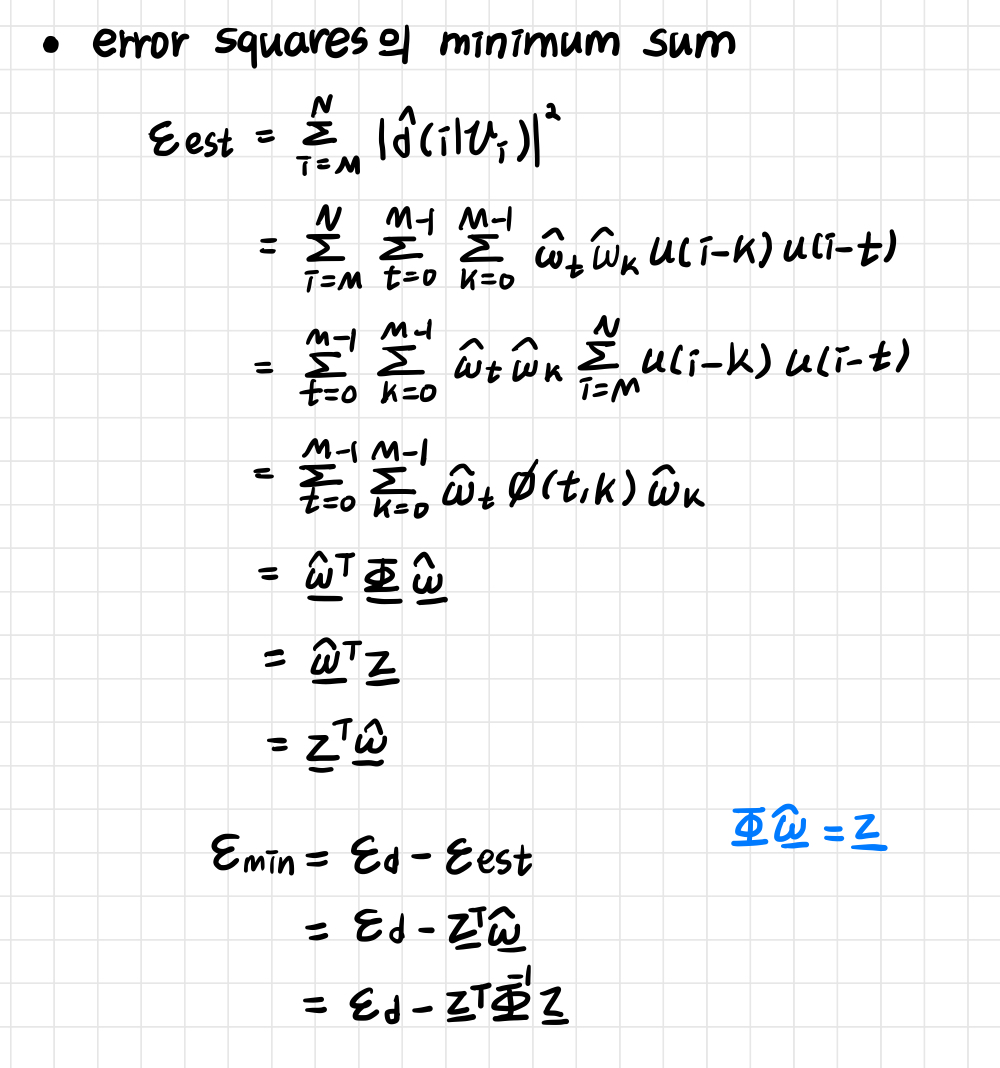 • error squares의 minimum sum
ℰest = Σ_{i=M}^{N} |d̂(i|𝒰ᵢ)|²
= Σ_{i=M}^{N} Σ_{t=0}^{M-1} Σ_{k=0}^{M-1} ŵₜ ŵₖ u(i-k) u(i-t)
= Σ_{t=0}^{M-1} Σ_{k=0}^{M-1} ŵₜ ŵₖ Σ_{i=M}^{N} u(i-k) u(i-t)
= Σ_{t=0}^{M-1} Σ_{k=0}^{M-1} ŵₜ ϕ(t,k) ŵₖ
= ŵ̲ᵀ Φ̲ ŵ̲
= ŵ̲ᵀ z̲
= z̲ᵀ ŵ̲
Φ̲ ŵ̲ = z̲
ℰmin = ℰd - ℰest
= ℰd - z̲ᵀ ŵ̲
= ℰd - z̲ᵀ Φ̲⁻¹ z̲